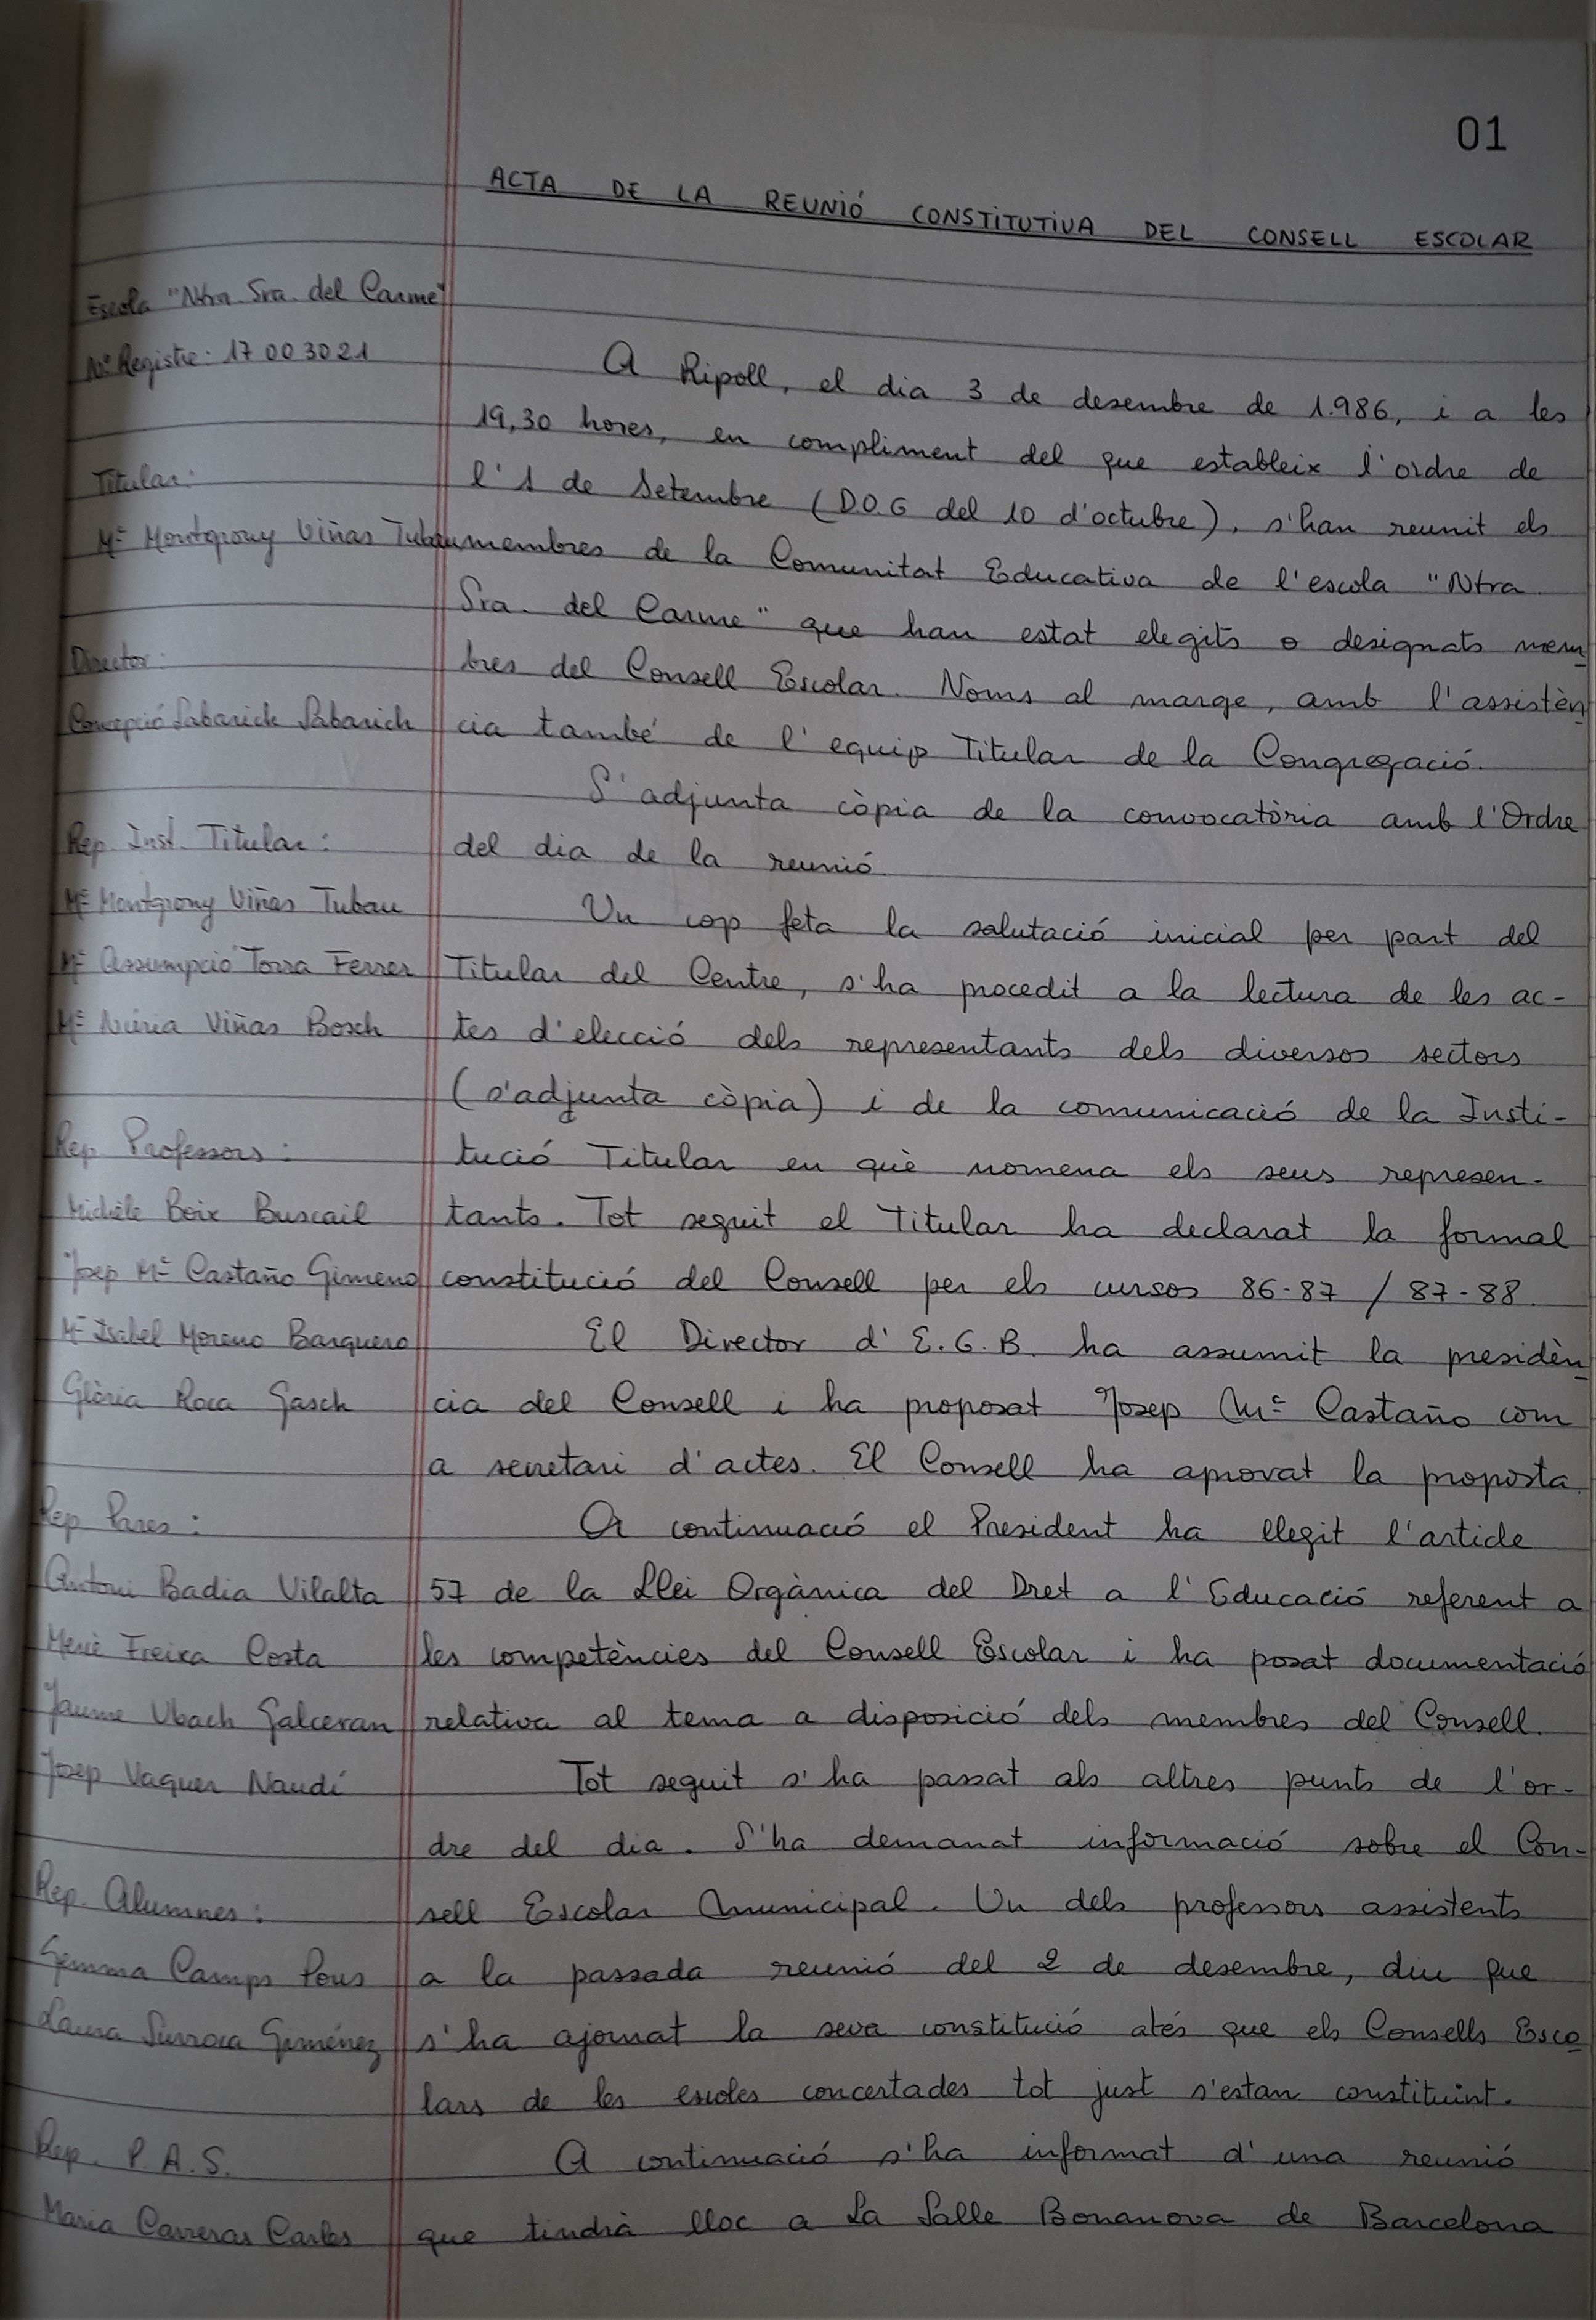 01
ACTA DE LA REUNIÓ CONSTITUTIVA DEL CONSELL ESCOLAR
Escola "Ntra. Sra. del Carme"
Nº Registre: 17 00 3021
Titular:
Mª Montgrony Viñas Tubau
Director:
Concepció Sabarich Sabarich
Rep. Inst. Titular:
Mª Montgrony Viñas Tubau
Mª Assumpció Torra Ferrer
Mª Núria Viñas Bosch
Rep. Professors:
Michèle Boix Buscail
Josep Mª Castaño Gimeno
Mª Isabel Moreno Barquero
Glòria Roca Gasch
Rep. Pares:
Antoni Badia Vilalta
Mercè Freixa Costa
Jaume Ubach Galceran
Josep Vaquer Naudí
Rep. Alumnes:
Gemma Camps Pous
Laura Surroca Giménez
Rep. P.A.S.
Maria Carreras Carles
A Ripoll, el dia 3 de desembre de 1.986, i a les
19,30 hores, en compliment del que estableix l'ordre de
l'1 de Setembre (D.O.G del 10 d'octubre), s'han reunit els
membres de la Comunitat Educativa de l'escola "Ntra.
Sra. del Carme" que han estat elegits o designats mem
bres del Consell Escolar. Noms al marge, amb l'assistèn
cia també de l'equip Titular de la Congregació.
S'adjunta còpia de la convocatòria amb l'Ordre
del dia de la reunió.
Un cop feta la salutació inicial per part del
Titular del Centre, s'ha procedit a la lectura de les ac-
tes d'elecció dels representants dels diversos sectors
(s'adjunta còpia) i de la comunicació de la Insti-
tució Titular en què nomena els seus represen-
tants. Tot seguit el Titular ha declarat la formal
constitució del Consell per els cursos 86-87 / 87-88.
El Director d'E.G.B. ha assumit la presidèn
cia del Consell i ha proposat Josep Mª Castaño com
a secretari d'actes. El Consell ha aprovat la proposta.
A continuació el President ha llegit l'article
57 de la Llei Orgànica del Dret a l'Educació referent a
les competències del Consell Escolar i ha posat documentació
relativa al tema a disposició dels membres del Consell.
Tot seguit s'ha passat als altres punts de l'or-
dre del dia. S'ha demanat informació sobre el Con-
sell Escolar Municipal. Un dels professors assistents
a la passada reunió del 2 de desembre, diu que
s'ha ajornat la seva constitució atés que els Consells Esco
lars de les escoles concertades tot just s'estan constituint.
A continuació s'ha informat d'una reunió
que tindrà lloc a La Salle Bonanova de Barcelona